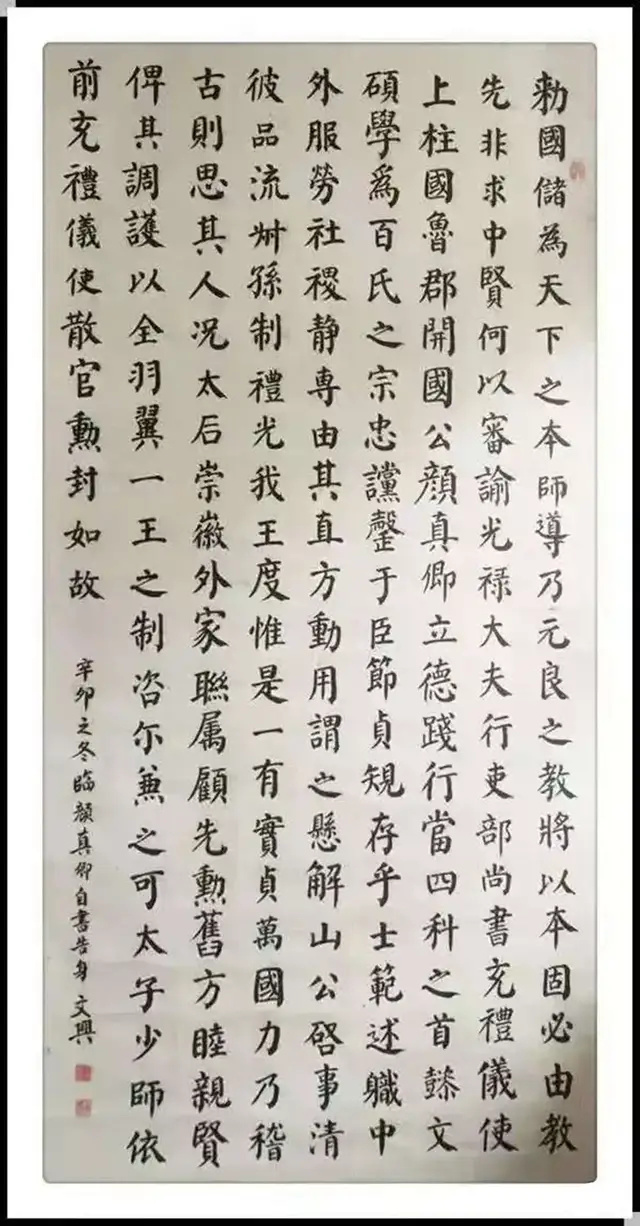 勑國儲為天下之本師導乃元良之教將以本固必由教
先非求中賢何以審諭光禄大夫行吏部尚書充禮儀使
上柱國魯郡開國公顔真卿立德踐行當四科之首懿文
碩學爲百氏之宗忠讜罄于臣節貞規存乎士範述職中
外服勞社稷静専由其直方動用謂之懸解山公啓事清
彼品流叔孫制禮光我王度惟是一有實貞萬國力乃稽
古則思其人况太后崇徽外家聯属顧先勲舊方睦親賢
俾其調護以全羽翼一王之制咨尓兼之可太子少師依
前充禮儀使散官勲封如故
辛卯之冬臨顔真卿自書告身 文興